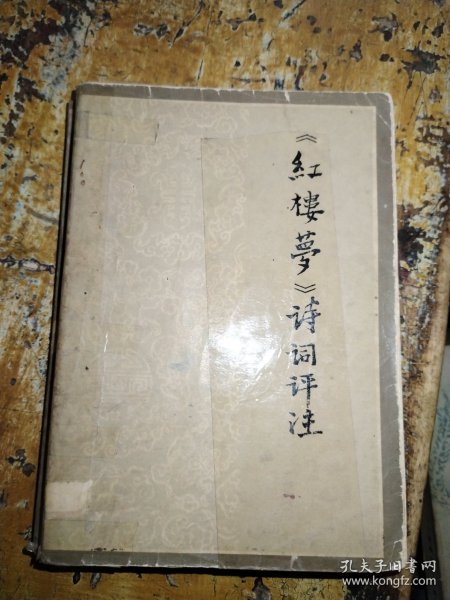 《紅楼夢》诗词评注
孔夫子旧书网
www.kongfz.com